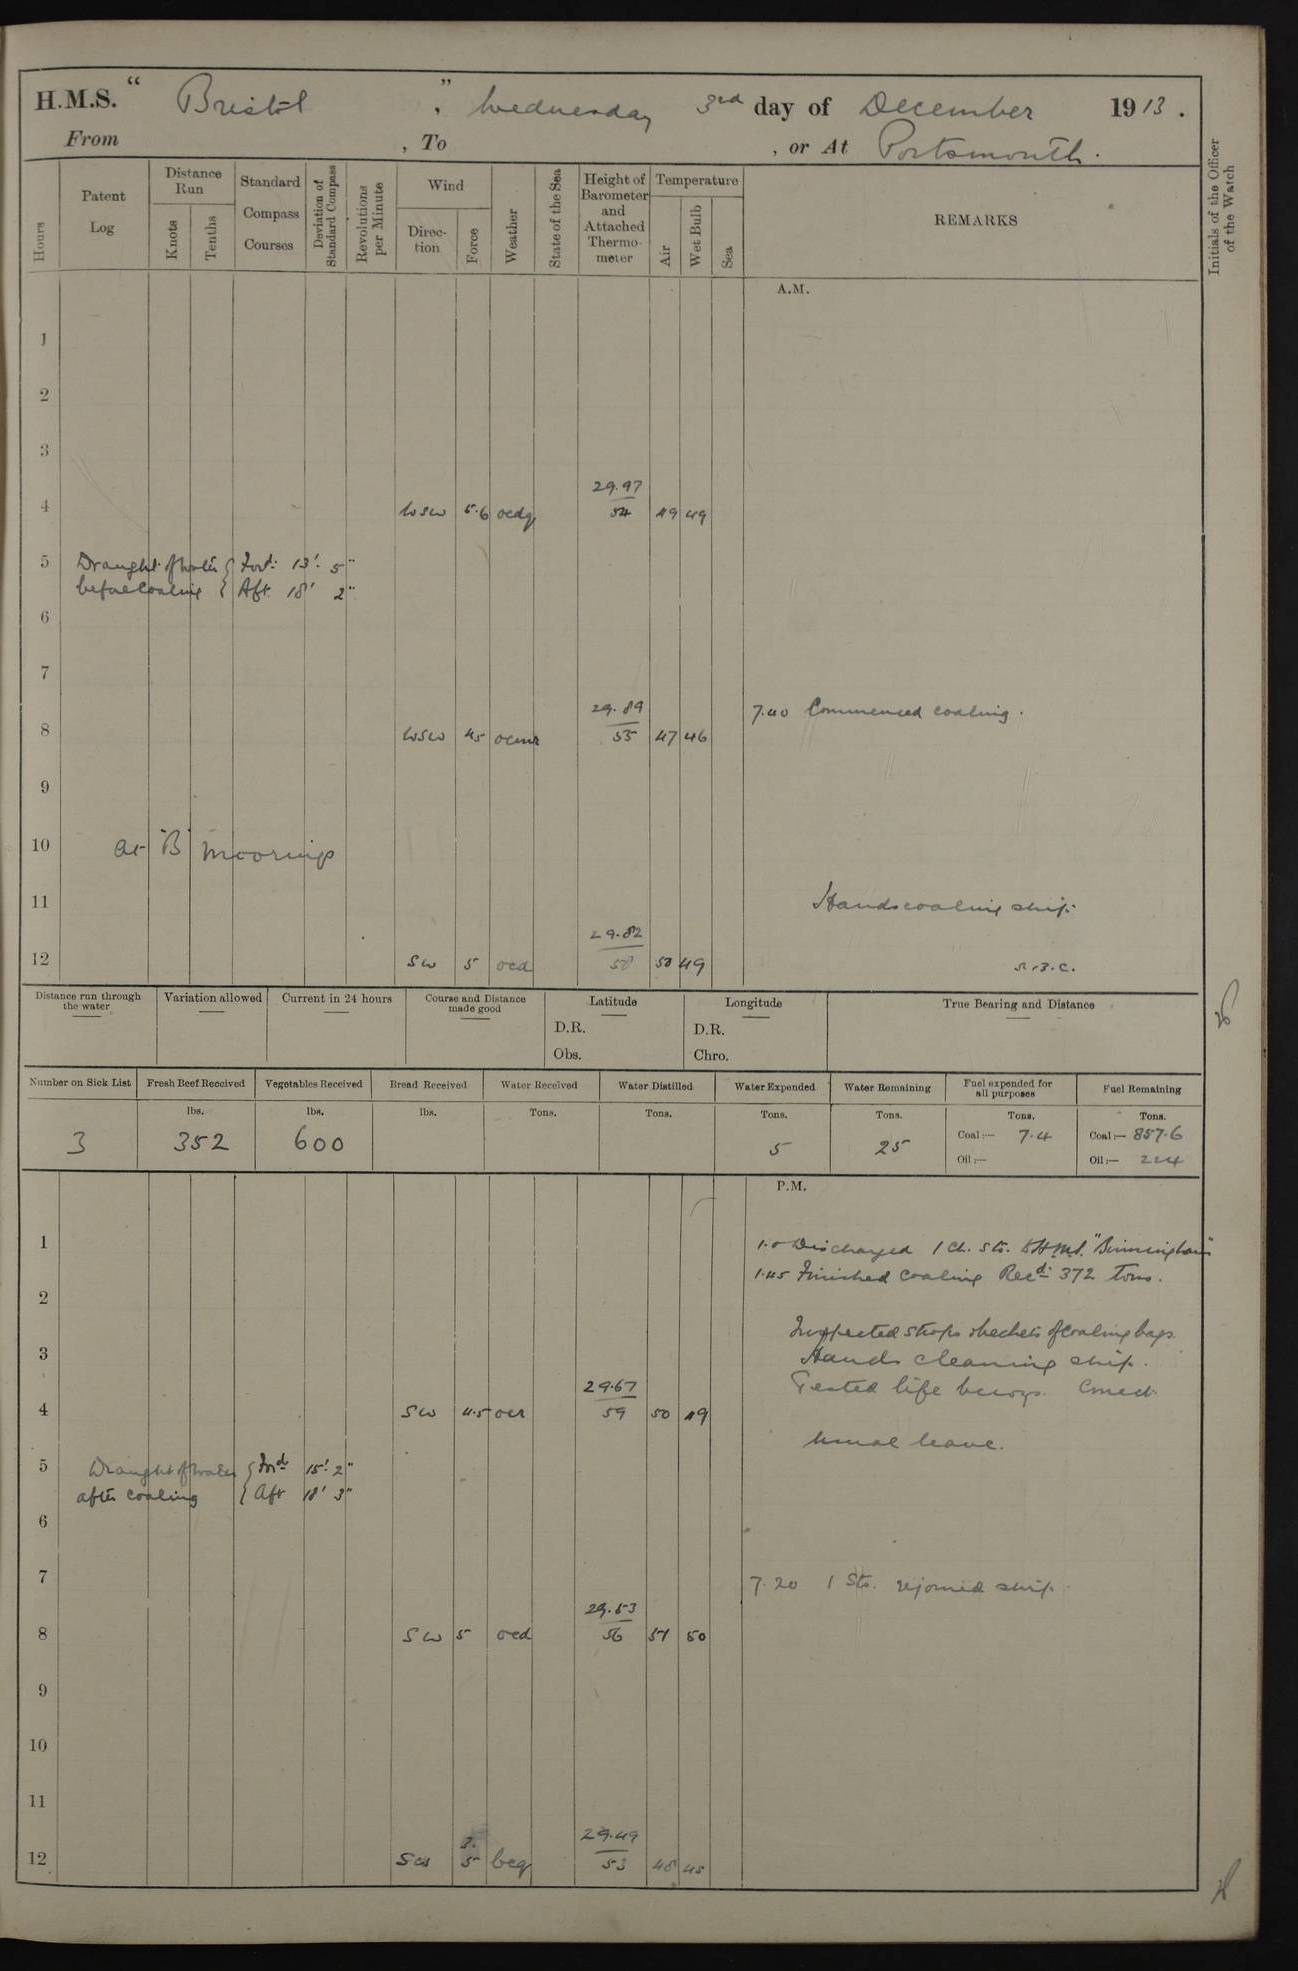 H.M.S. "Bristol", Wednesday 3rd day of December 1913.
From , To , or At Portsmouth.
Hours
Patent Log
Distance Run
Knots
Tenths
Standard Compass Courses
Deviation of Standard Compass
Revolutions per Minute
Wind
Direction
Force
Weather
State of the Sea
Height of Barometer and Attached Thermometer
Temperature
Air
Wet Bulb
Sea
REMARKS
Initials of the Officer of the Watch
A.M.
1
2
3
29.97
4 WSW 5.6 ocdq 54 49 49
5 Draught of water { Ford: 13' 5"
before coaling { Aft. 18' 2"
6
7
29.89 7.40 Commenced coaling.
8 WSW 4.5 55 47 46
9
10 at "B" moorings
11 Hands coaling ship.
29.82
12 SW 5 ocd 58 50 49
Distance run through the water
Variation allowed
Current in 24 hours
Course and Distance made good
Latitude
D.R.
Obs.
Longitude
D.R.
Chro.
True Bearing and Distance
Number on Sick List Fresh Beef Received Vegetables Received Bread Received Water Received Water Distilled Water Expended Water Remaining Fuel expended for all purposes Fuel Remaining
lbs. lbs. lbs. Tons. Tons. Tons. Tons. Tons. Tons.
3 352 600 5 25 Coal:— 7.4 Coal:— 857.6
Oil:— Oil:— 224
P.M.
1 1.0 Discharged 1 Ch. Sto. to H.M.S. "Birmingham"
1.45 Finished coaling Recd. 372 Tons.
2
Inspected strops & beckets of coaling bags.
3 Hands cleaning ship.
29.67 Tested life buoys. Correct.
4 SW 4.5 ocr 59 50 49
Usual leave.
5 Draught of water { Ford 15' 2"
after coaling { Aft 18' 3"
6
7 7.20 1 Sto. rejoined ship.
29.53
8 SW 5 ocd 56 51 50
9
10
11
29.49
12 SW 5 bcq 53 48 45